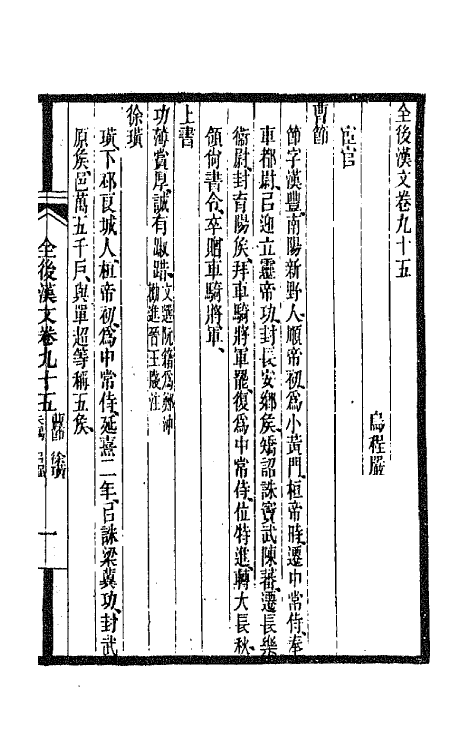 全後漢文卷九十五
烏程嚴
宦官
曹節
節字漢豐南陽新野人順帝初爲小黃門桓帝時遷中常侍奉
車都尉㠯迎立靈帝功封長安鄉矦矯詔誅竇武陳蕃遷長樂
衞尉封育陽矦拜車騎將軍罷復爲中常侍位特進轉大長秋
領尚書令卒贈車騎將軍
上書
功薄賞厚誠有踧踖文選阮籍爲鄭沖
勸進晉王牋注
徐璜
璜下邳良城人桓帝初爲中常侍延熹二年㠯誅梁冀功封武
原矦邑萬五千戶與單超等稱五矦
全後漢文卷九十五
曹節 徐璜
一